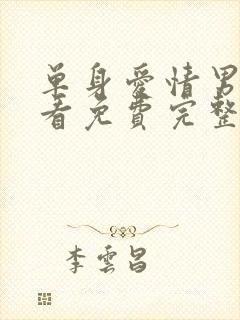 单身爱情男
看免费完整
李雲昌